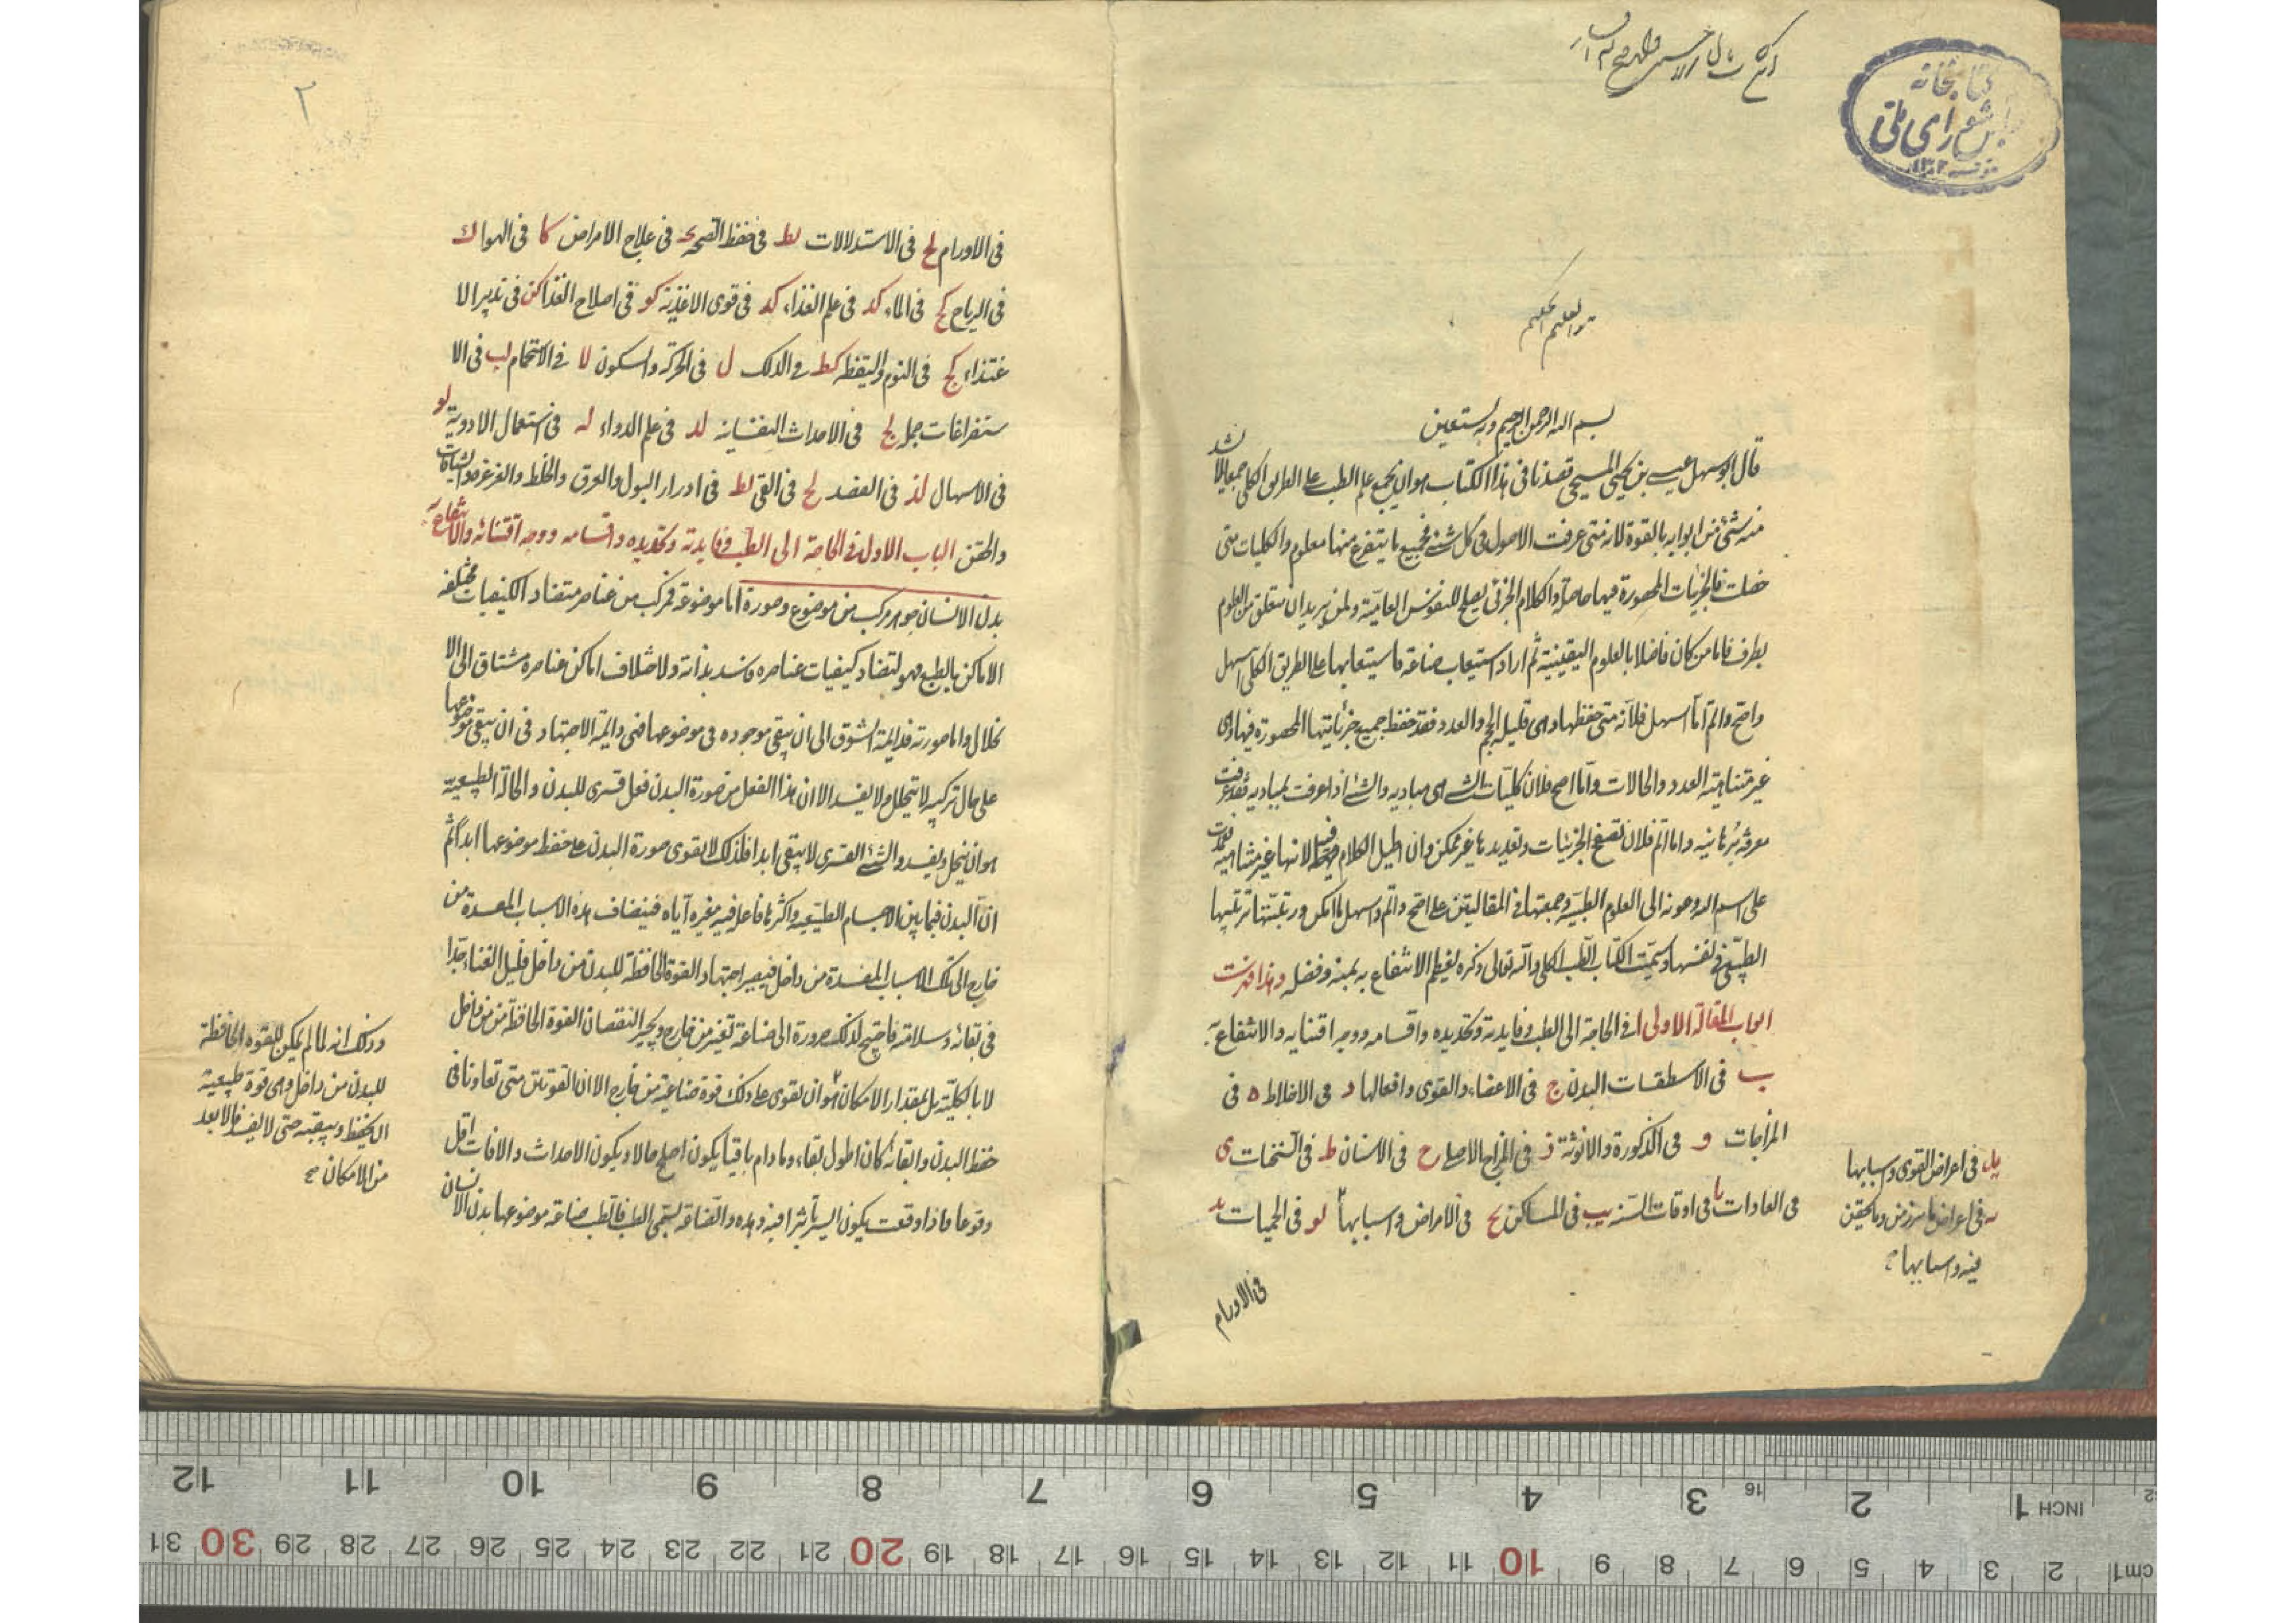 كتابخانه
مجلس شورای ملی
هو العليم الحكيم
بسم الله الرحمن الرحيم وبه نستعين
قال ابو سهل عيسى بن يحيى المسيحى قصدنا فى هذا الكتاب هو ان نجمع علم الطب على الطريق الكلى جمعا لا يشذ
منه شئ من ابوابه بالقوة لانه متى عرفت الاصول فى كل شئ فجميع ما يتفرع منها معلوم والكليات متى
حصلت فالجزئيات المحصورة فيها حاصلة والكلام الجزئى يصلح للنفوس العامية ولمن يريد ان يتعلق من العلوم
بطرف فاما من كان فاضلا بالعلوم اليقينية ثم اراد استيعاب صناعة فاستيعابها على الطريق الكلى اسهل
واصح واتم اما اسهل فلانه متى حفظها وهى قليلة الحجم والعدد فقد حفظ جميع جزئياتها المحصورة فيها وهى
غير متناهية العدد والحالات واما اصح فلان كليات الشئ هى مباديه والشئ اذا عرفت بمباديه فقد عرفت
معرفة برهانيه واما اتم فلان تصفح الجزئيات وتعديدها غير ممكن وان اطيل الكلام فيها لانها غير متناهية
على اسم الله وعونه الى العلوم الطبية وجمعتها فى المقالتين على اصح واتم واسهل ما امكن ورتبتها ترتيبها
الطبيعى فى نفسها وسميت الكتاب الطب الكلى والله تعالى ذكره ليعظم الانتفاع به بمنه وفضله وهذا فهرست
ابواب المقالة الاولى ا فى الحاجة الى الطب وفايدته وتحديده واقسامه ووجه اقتنايه والانتفاع به
ب فى الاسطقسات البدن ج فى الاعضاء والقوى وافعالها د فى الاخلاط ه فى
المزاجات و فى الذكورة والانوثة ز فى المزاج الاصلى ح فى الاسنان ط فى السحنات ى
فى العادات يا فى اوقات السنه يب فى المساكن يج فى الامراض واسبابها يو فى الحميات يد
يد فى اعراض القوى واسبابها
يه فى اعراض ما يبرز من وما يحتقن
فيه واسبابها
فى الاورام
٢
فى الاورام يح فى الاستدلالات يط فى حفظ الصحه ك فى علاج الامراض كا فى الهوا ك
فى الرياح كج فى الماء كد فى علم الغذاء كد فى قوى الاغذية كو فى اصلاح الغذا كز فى تدبير الا
غتذاء كح فى النوم واليقظه كط فى الدلك ل فى الحركة والسكون لا فى الاستحمام لب فى الا
ستفراغات جمل لج فى الاحداث النفسانيه لد فى علم الدواء له فى استعمال الادوية لو
فى الاسهال لز فى الفصد لح فى القى لط فى ادرار البول والعرق والمخاط والغرغره والشيافات
والحقن الباب الاول فى الحاجة الى الطب وفايدته وتحديده واقسامه ووجه اقتنائه والانتفاع به
بدن الانسان جوهر مركب من موضوع وصورة اما موضوعه فمركب من عناصر متضاد الكيفيات مختلفه
الاماكن بالطبع فهو لتضاد كيفيات عناصره فاسد بذاته ولاختلاف اماكن عناصره مشتاق الى الا
نحلال واما صورته فدايمة الشوق الى ان تبقى موجوده فى موضوعها فهى دايمة الاجتهاد فى ان يبقى موضوعها
على حال تركيبه لا يتحلل ولا يفسد الا ان هذا الفعل من صورة البدن فعل قسرى للبدن والحالة الطبيعية
هو ان ينحل ويفسد والشئ القسرى لا يبقى ابدا فلذلك لا يقوى صورة البدن على حفظ موضوعها ابدا ثم
ان البدن فيما بين الاجسام الطبيعيه واكثرها فاعل فيه مغيره اياه فينضاف هذه الاسباب المفسدة من
خارج الى تلك الاسباب المفسدة من داخل فيصير اجتهاد القوة الحافظة للبدن من داخل قليل الغناء جدا
فى بقائه وسلامته فاحتيج لذلك ضرورة الى صناعة تعين من خارج ويجبر النقصان القوة الحافظة من داخل
لا بالكلية بل بمقدار الامكان هو ان تقوى على ذلك قوة صناعية من خارج الا ان القوتين متى تعاونا فى
حفظ البدن وابقائه كان اطول بقاء وما دام باقيا يكون اصلح حالا ويكون الاحداث والافات اقل
وقوعا فاذا وقعت يكون ايسر تأثيرا فيه وهذه الصناعة تسمى الطب فالطب صناعة موضوعها بدن الانسان
وذلك انه لما لم يمكن للقوه الحافظة
للبدن من داخل وهى قوة طبيعية
ان يحفظ ويبقيه حتى لا يفسد فالابعد
من الامكان صح